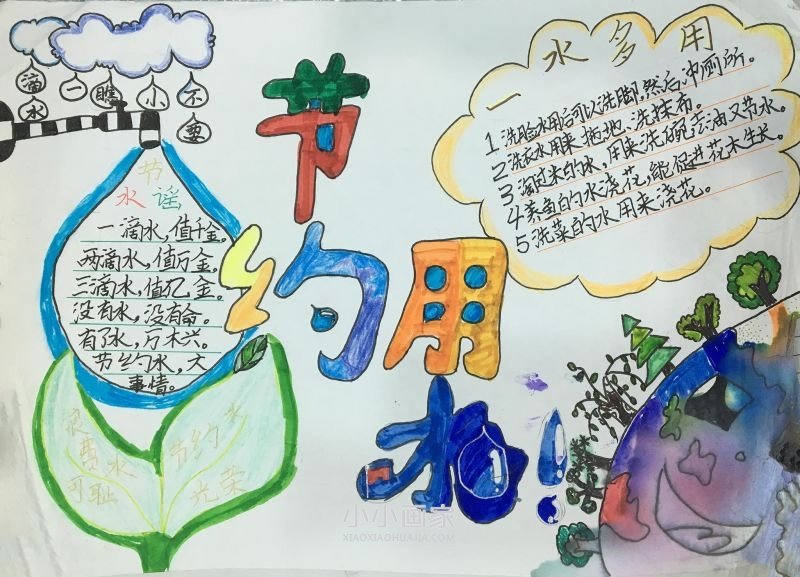 滴水一瞧小不忽
节
水谣
一滴水,值千金。
两滴水,值万金。
三滴水,值亿金。
没有水,没有命。
有了水,万木兴。
节约水,大
事情。
浪费水
可耻
节约水
光荣
节约用水!
一水多用
1 洗脸水用后可以洗脚,然后冲厕所。
2 洗衣水用来拖地、洗抹布。
3 淘过米的水,用来洗碗去油又节水。
4 养鱼的水浇花,能促进花木生长。
5 洗菜的水用来浇花。
小小画家
XIAOXIAOHUAJIA.COM